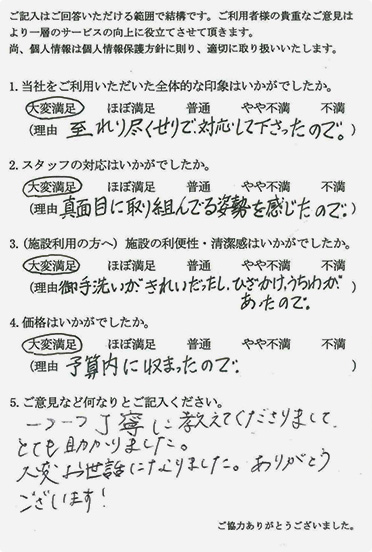 ご記入はご回答いただける範囲で結構です。ご利用者様の貴重なご意見は
より一層のサービスの向上に役立てさせて頂きます。
尚、個人情報は個人情報保護方針に則り、適切に取り扱いいたします。
1. 当社をご利用いただいた全体的な印象はいかがでしたか。
大変満足 ほぼ満足 普通 やや不満 不満
(理由 至れり尽くせりで対応して下さったので。)
2. スタッフの対応はいかがでしたか。
大変満足 ほぼ満足 普通 やや不満 不満
(理由 真面目に取り組んでる姿勢を感じたので。)
3. (施設利用の方へ) 施設の利便性・清潔感はいかがでしたか。
大変満足 ほぼ満足 普通 やや不満 不満
(理由 御手洗いがきれいだったし、ひざかけ、うちわが
あったので。)
4. 価格はいかがでしたか。
大変満足 ほぼ満足 普通 やや不満 不満
(理由 予算内に収まったので。)
5. ご意見など何なりとご記入ください。
一つ一つ丁寧に教えてくださりまして
とても助かりました。
大変お世話になりました。ありがとう
ございます!
ご協力ありがとうございました。